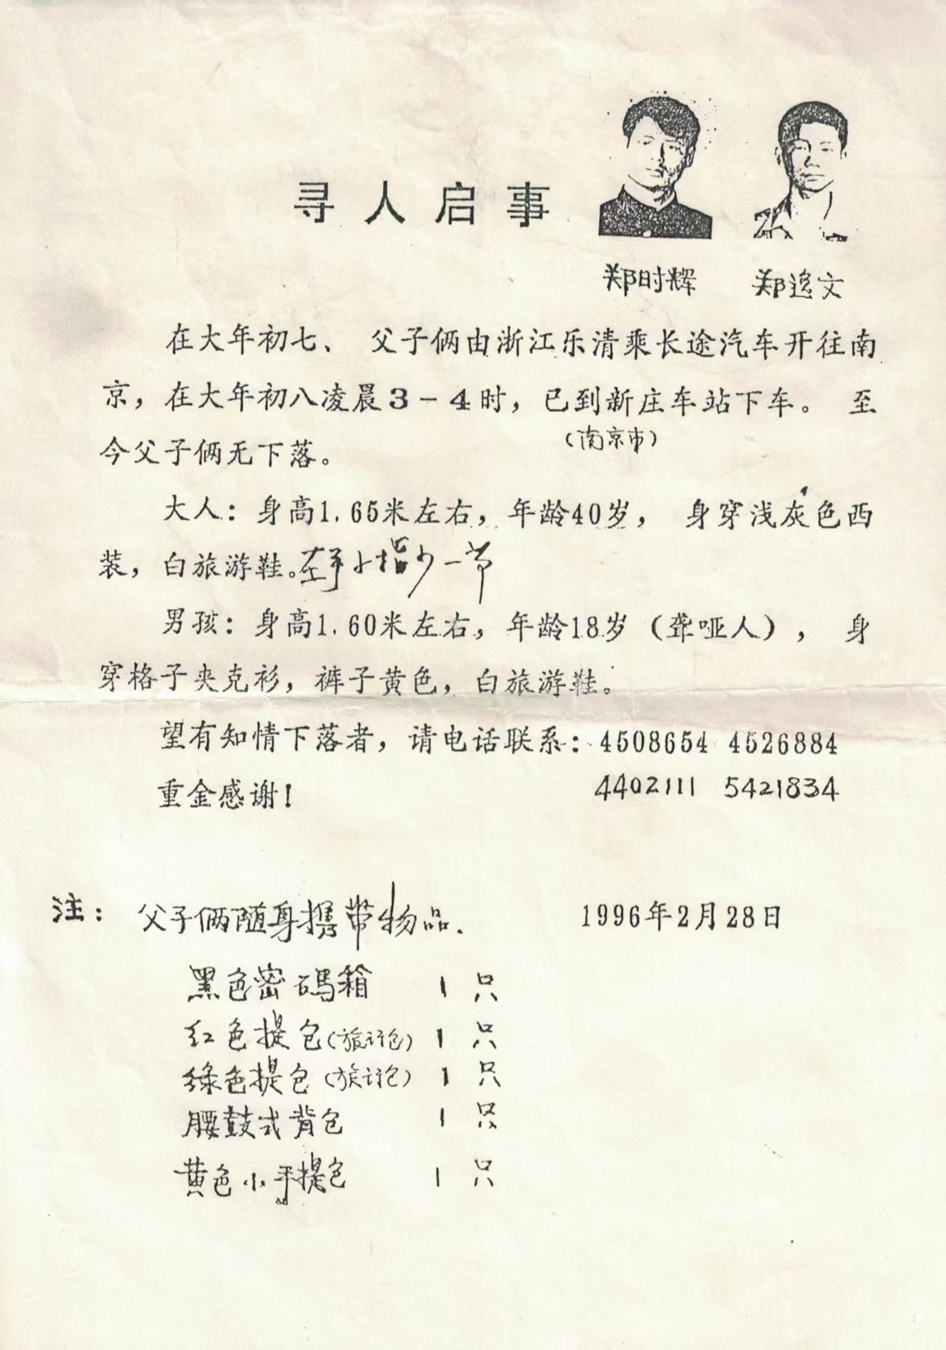 寻人启事
郑时辉 郑逸文
在大年初七、 父子俩由浙江乐清乘长途汽车开往南
京，在大年初八凌晨3-4时，已到新庄车站下车。 至
（南京市）
今父子俩无下落。
大人：身高1.65米左右，年龄40岁， 身穿浅灰色西
装，白旅游鞋。左手小指少一节
男孩：身高1.60米左右，年龄18岁（聋哑人）， 身
穿格子夹克衫，裤子黄色，白旅游鞋。
望有知情下落者，请电话联系：4508654 4526884
重金感谢！ 4402111 5421834
注： 父子俩随身携带物品. 1996年2月28日
黑色密码箱 1 只
红色提包（旅行包） 1 只
绿色提包（旅行包） 1 只
腰鼓式背包 1 只
黄色小手提包 1 只